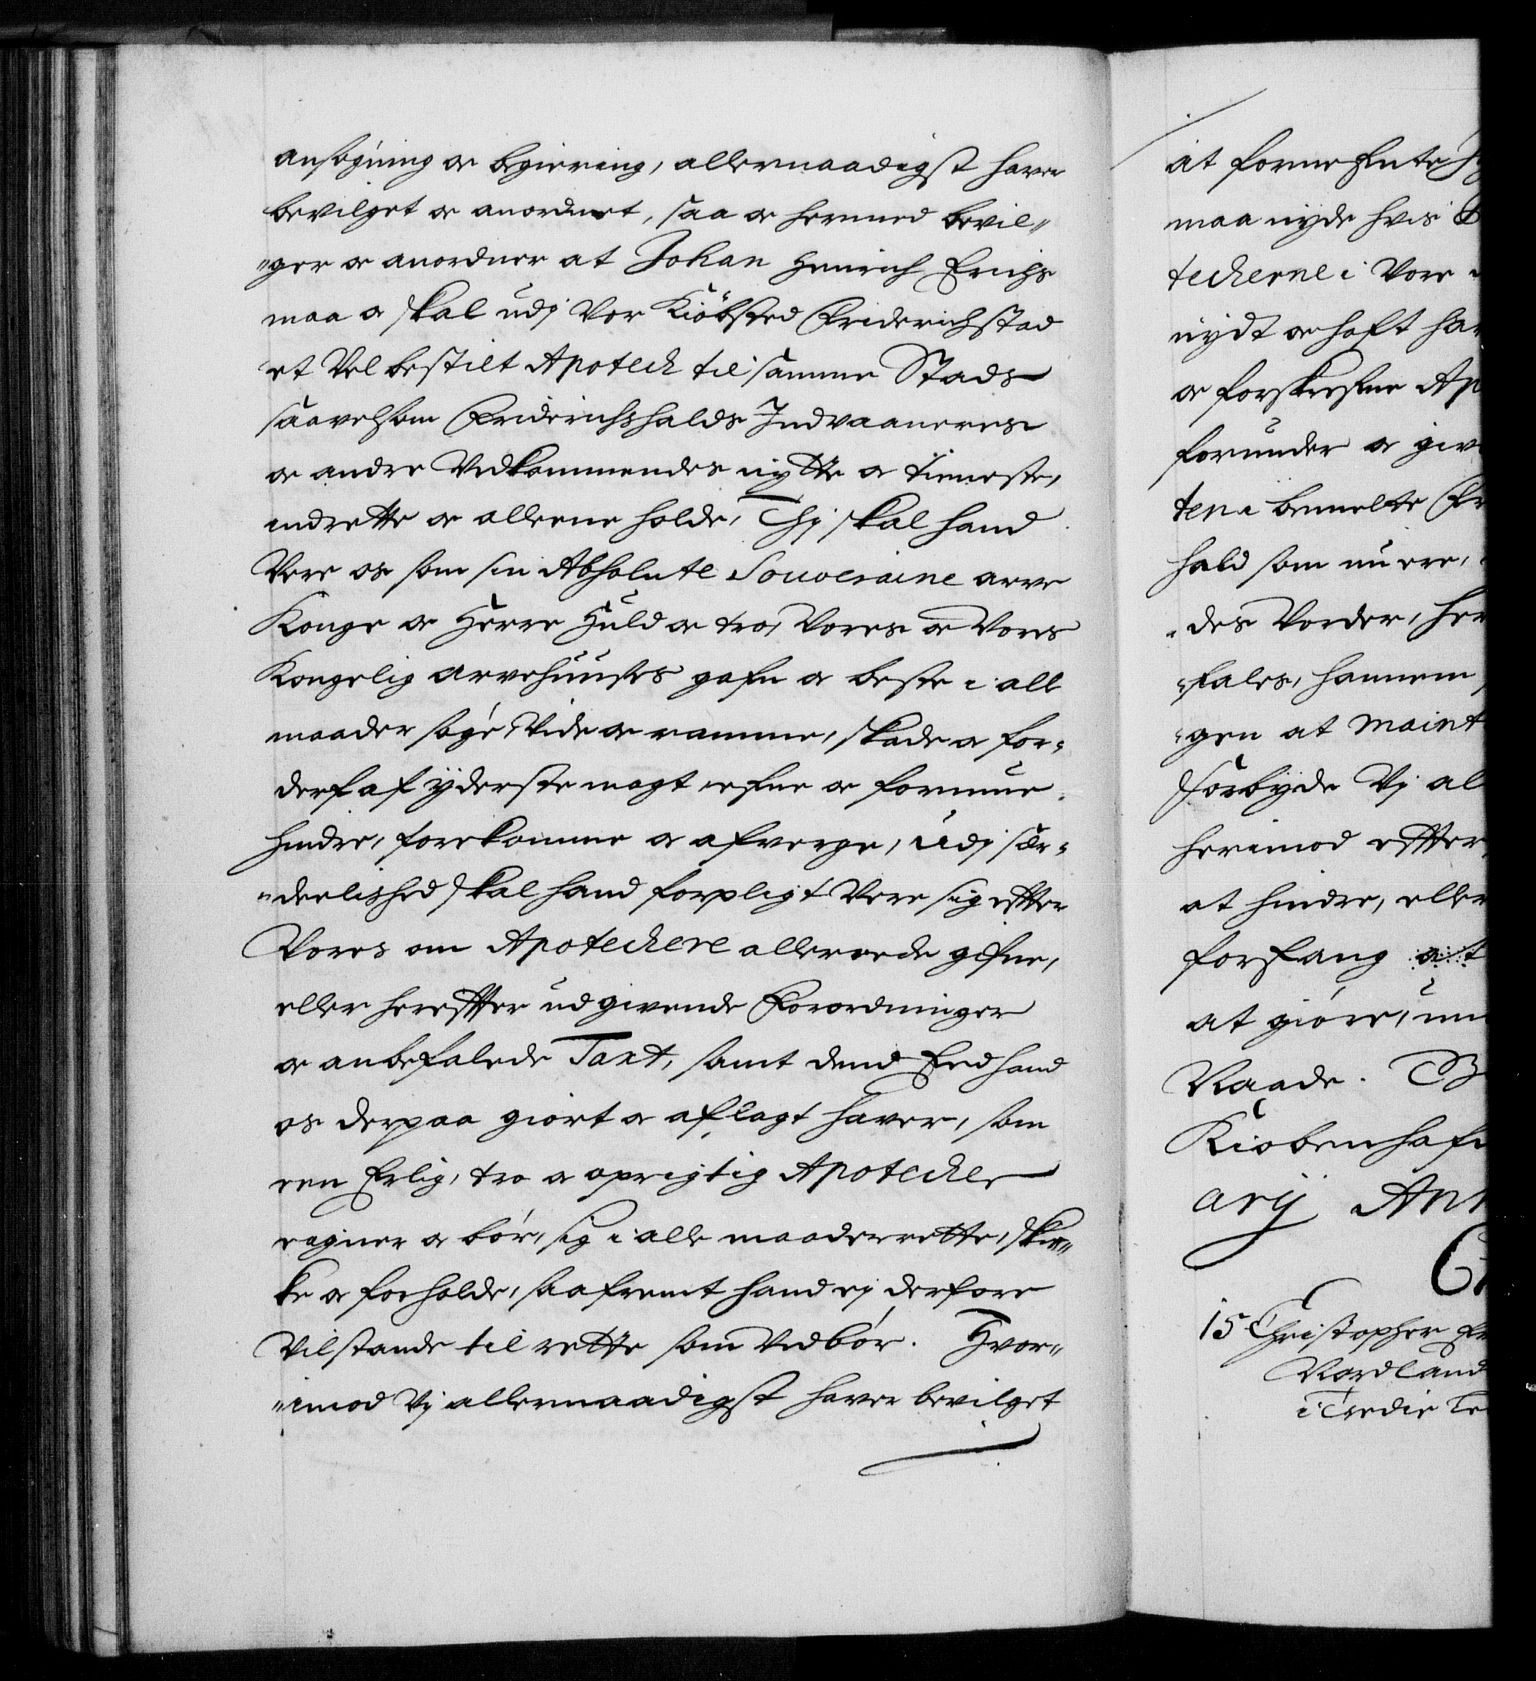 ansøgning oc begiering, allernaadigst haver
bevilget oc anordnet, saa oc hermed bevil„
„ger oc anordner at Johan Henrich Erichs
maa oc skal udj Vor Kiöbsted Friderichstad
et Vel bestilt Apoteck til samme Stads
saavelsom Friderichshalds Indvaaneres
oc andre Vedkommendes nytte oc tienneste,
indrette oc alleene holde, Thj skal hand
Vere os som sin Absolute Souveraine arve
Konge oc Herre Huld oc tro, Vores oc Vores
Kongelig arvehuuses gafn oc beste i all
maader søge, Vide oc ramme, skade oc for„
derf af yderste magt, efne oc formue
hindre, forekomme oc afverge, udj sær„
„deelished skal hand forpligt Vere sig effter
Vores om Apotechere allerede gifne,
eller hereffter udgivende Forordninger
oc anbefalede Taxt, samt dend Eed hand
os derpaa giort oc aflagt haver, som
een Erlig, tro oc oprigtig Apotecher
eigner oc bör, sig i alle maader rette, skic„
ke oc forholde, saafremt hand ej derfore
Vil stande til rette som Vedbör. Hvor„
„imod Vj allernaadigst haver bevilget
at forne
maa nyde hvis
techerne i Vore
nydt oc haft ha
oc forskrefne Ap
forunder oc giv
ten i bemelte Fr
hald som nu ere,
„des Vorder, her
„fales, hannem
„gen at maint
Forbyde Vj al
herimod effter
at hindre, eller
forfang
at giöre, un
Naade. 
Kiøbenhafn
arij Ann
15 Christopher
Nordland
i Tredie Te